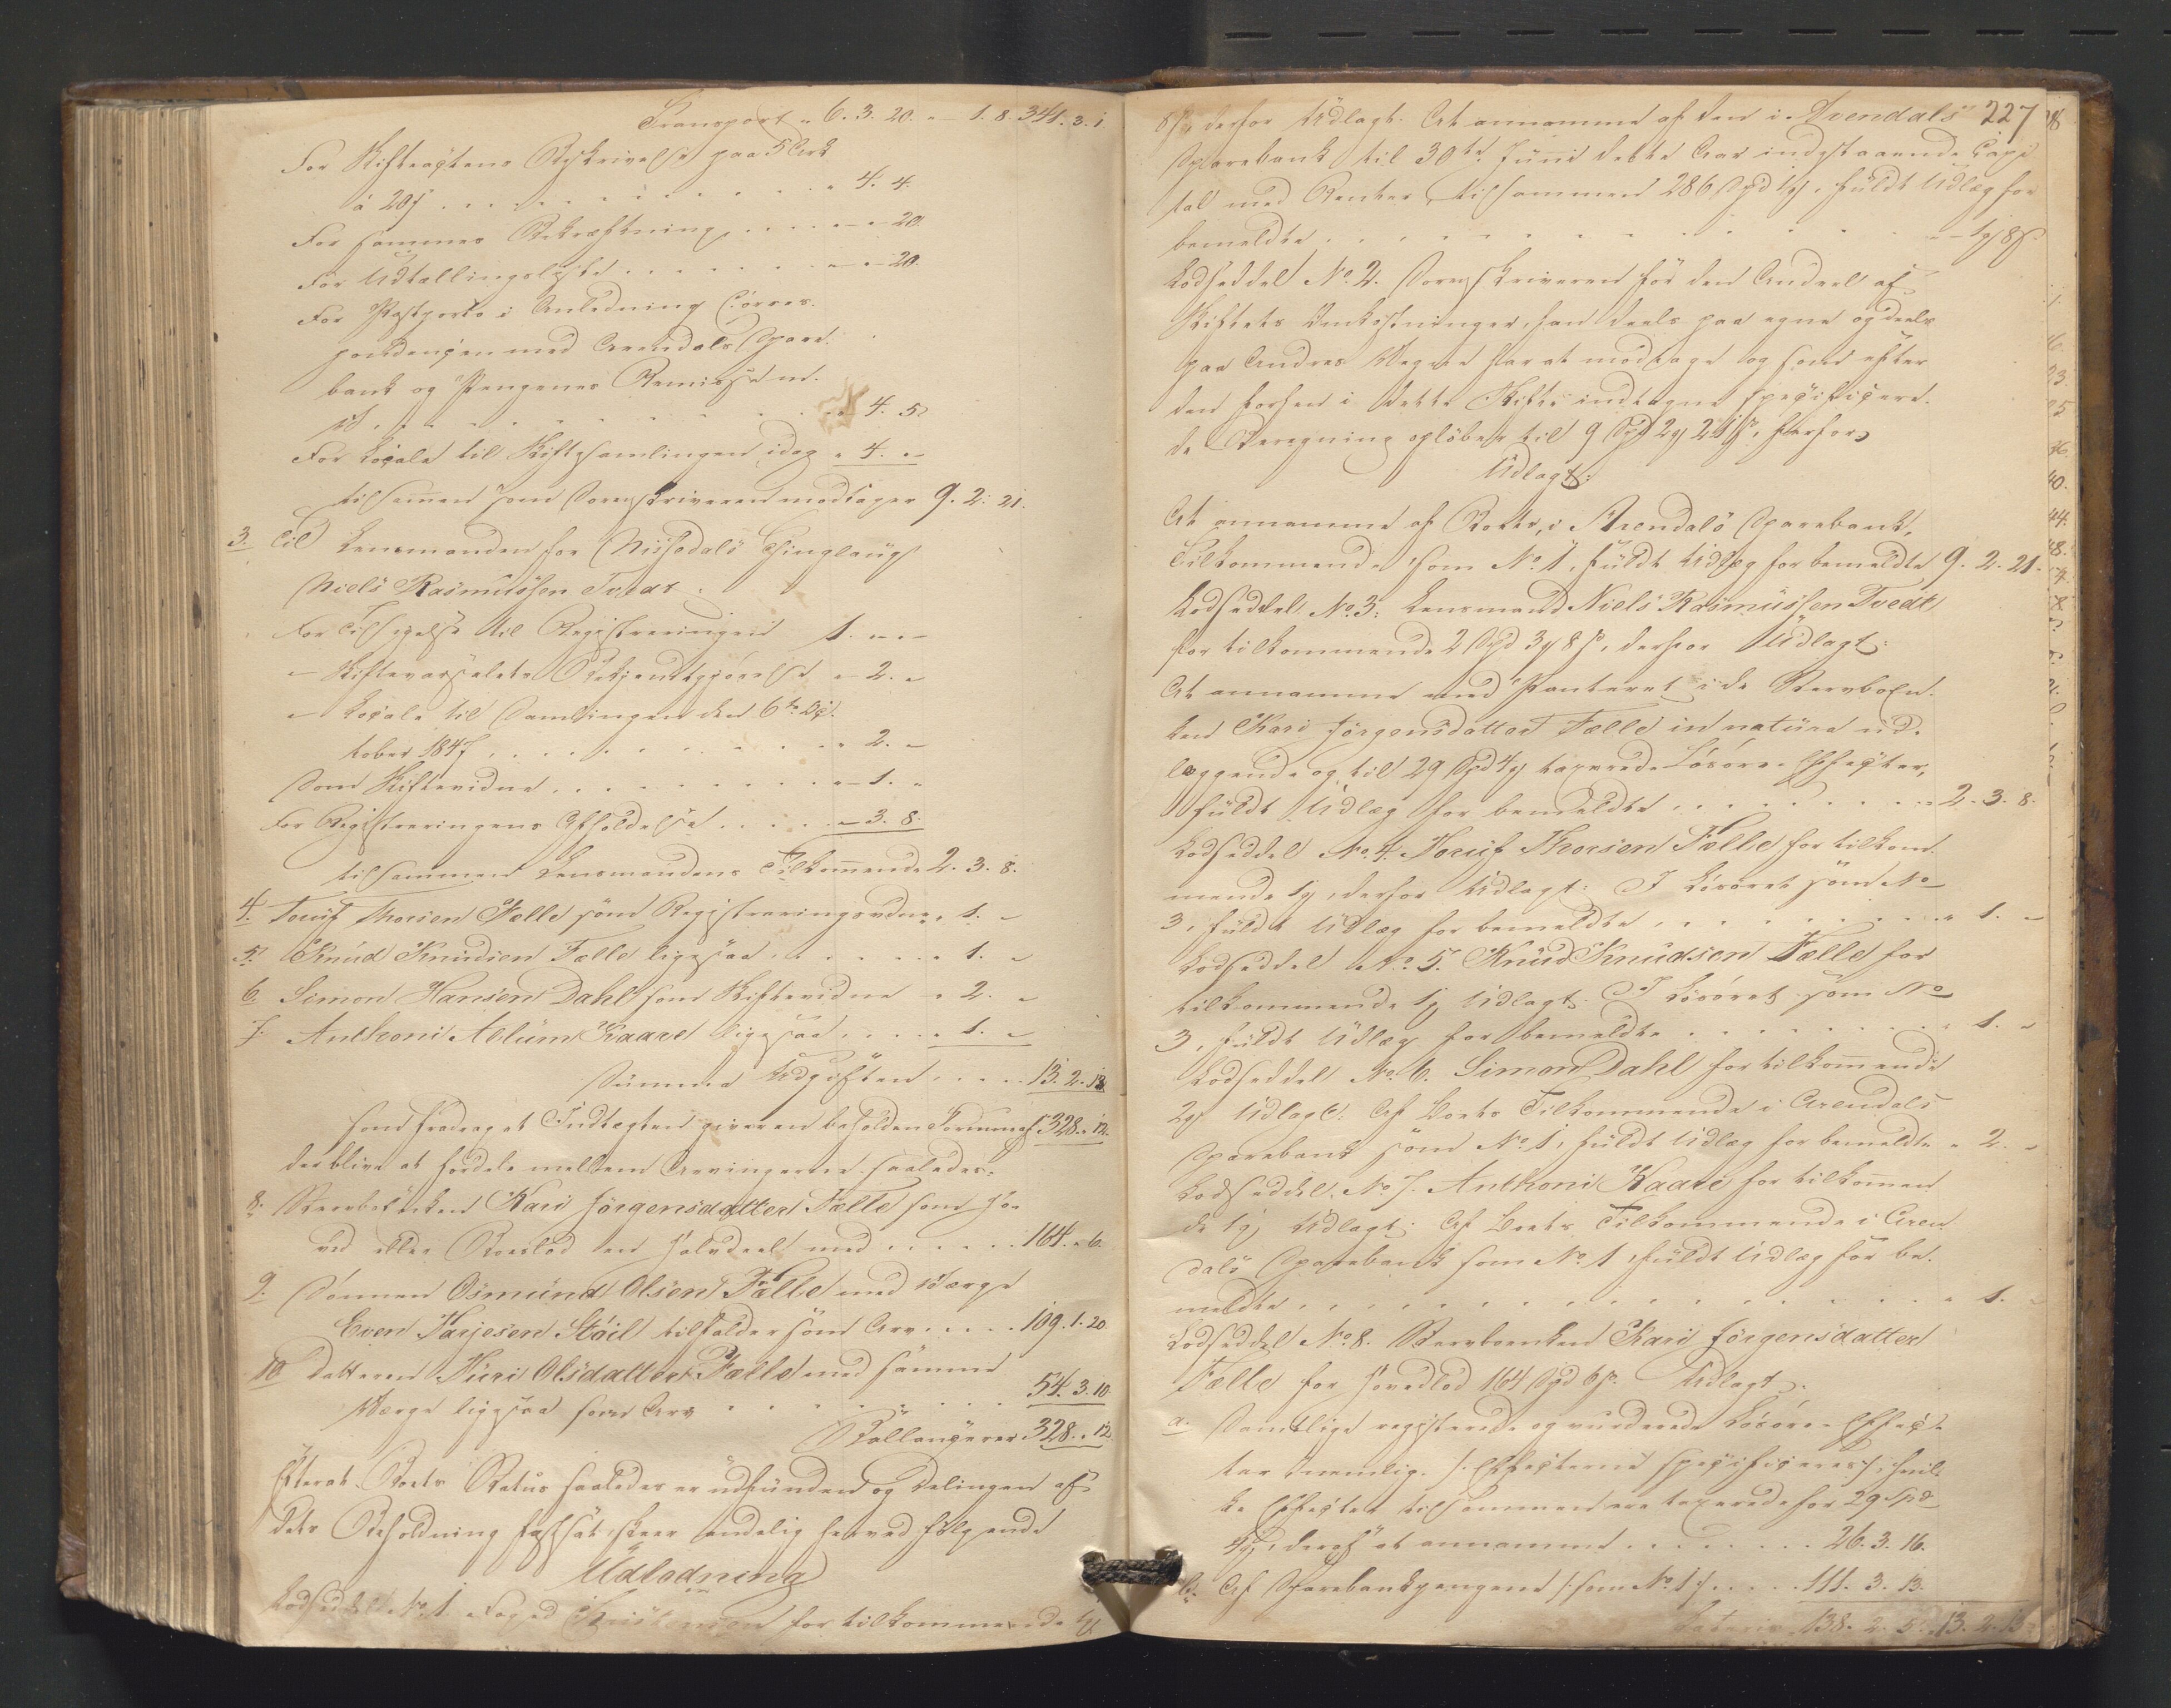 Transport „ 6. 3. 20. „ — 1. 8. 341. 3. 1
For Skifteagtens Beskrivelse paa 5 Ark
à 20 s . . . . . . . . „ 4. 4.
For sammes Bekræftning . . . . „ „ 20.
For Udtællingsliste . . . . . . „ „ 20.
For Postporto i Anledning Corres-
pondencen med Arendals Spare-
bank og Pengenes Remisse m.
v. . . . . . . . . . „ 4. 5
For Locale til Skiftesamlingen idag „ 4. „
tilsammen som Sorenskriveren modtager 9. 2. 21.
3. Til Lensmanden for Nissedals Thinglaug
Niels Rasmussen Tvedt.
For Tilsigelse til Registreringen 1. „ „
— Skiftevarselets Bekjendtgjørelse „ 2. „
— Locale til Samlingen den 6te Oc-
tober 1847 . . . . . . . . „ 2. „
Som Skiftevidne . . . . . . . „ 1. „
For Registreringens Afholdelse . . . . „ 3. 8.
tilsammen Lensmandens Tilkommende 2. 3. 8.
4. Toruf Thorsen Fælle som Registreringsvidne „ 1. „
5. Knud Knudsen Fælle ligesaa . . . . . „ 1. „
6. Simon Hansen Dahl som Skiftevidne „ 2. „
7. Anthoni Kaare ligesaa . . . . „ 1. „
Summa Udgiften . . . . 13. 2. 13.
som fradraget Indtægten giver en beholden Formue af 328. „ 12.
der blive at fordele mellem Arvingerne saaledes:
8. Stervboenken Kari Jörgensdatter Fælle som Ho-
ved eller Boeslod en Halvdeel med . . . . . 164. „ 6.
9. Sönnen Osmund Olsen Fælle med Værge
Even Tarjesen Stöil tilfalder som Arv . . . . . 109. 1. 20
10 Datteren Huri Olsdatter Fælle med samme
Værge ligesaa som Arv . . . . . . . . 54. 3. 10
Ballancerer 328. „ 12.
Efterat Boets Status saaledes er udfunden og Delingen af
dets Beholdning fastsat, skeer endelig herved følgende
Udlodning
Lodseddel No 1. Foged Christensen for tilkommende 1
8 s, derfor Udlagt: At annamme af den i Arendals 227
Sparebank til 30te Juni dette Aar indestaaende Capi-
tal med Renter, tilsammen 286 Spd 1, fuldt Udlæg for
bemeldte . . . . . . . . . . . „ 1 8 s.
Lodseddel No. 2. Sorenskriveren for den Andeel af
Skiftets Omkostninger, han deels paa egne og deels
paa Andres Vegne har at modtage og som efter
den forhen i dette Skifte indtagne specificere-
de Beregning opløber til 9 Spd 2 21 s, herfor
Udlagt:
At annamme af Boets, i Arendals Sparebank,
Tilkommende som No. 1, fuldt Udlæg for bemeldte 9. 2. 21.
Lodseddel No. 3. Lensmand Niels Rasmussen Tvedt
for tilkommende 2 Spd 3 8 s, derfor Udlagt:
At annamme med Panteret i de Stervboen-
ken Kari Jörgensdatter Fælle in natura ud-
læggende og til 29 Spd 4 taxerede Lösöre-Effecter,
fuldt Udlæg for bemeldte . . . . . . . . 2. 3. 8.
Lodseddel No. 4. Toruf Thorsen Fælle for tilkom-
mende 1, derfor Udlagt: I Lösöret som No
3, fuldt Udlæg for bemeldte . . . . . . . „ 1. „
Lodseddel No. 5. Knud Knudsen Fælle for
tilkommende 1 Udlagt: I Lösöret som No
3, fuldt Udlæg for bemeldte . . . . . . . „ 1. „
Lodseddel No. 6. Simon Dahl for tilkommende
2 Udlagt: Af Boets Tilkommende i Arendals
Sparebank som No. 1, fuldt Udlæg for bemeldte „ 2. „
Lodseddel No. 7. Anthoni Kaare for tilkommen-
de 1 Udlagt: Af Boets Tilkommende i Aren-
dals Sparebank som No. 1, fuldt Udlæg for be-
meldte . . . . . . . . . . . „ 1. „
Lodseddel No. 8. Stervboenken Kari Jörgensdatter
Fælle for Hovedlod 164 Spd 6 s. Udlagt:
a. Samtlige registrerede og vurderede Lösöre-Effec-
ter nemlig /: Effecterne specificeres :/, hvil-
ke Effecter tilsammen ere taxerede for 29 Spd
4, deraf at annamme . . . . . . . 26. 3. 16.
b. Af Sparebankpengene /: som No. 1 :/ . . . . 111. 3. 13.
Lateris 138. 2. 5. 13. 2. 13